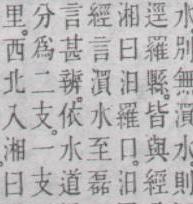 水別無濆水則
逕羅縣。皆與經
湘曰汨羅口。汨
經言濆水至磊
言甚辨。依水道
分為二支。一支
里。西北入湘。曰